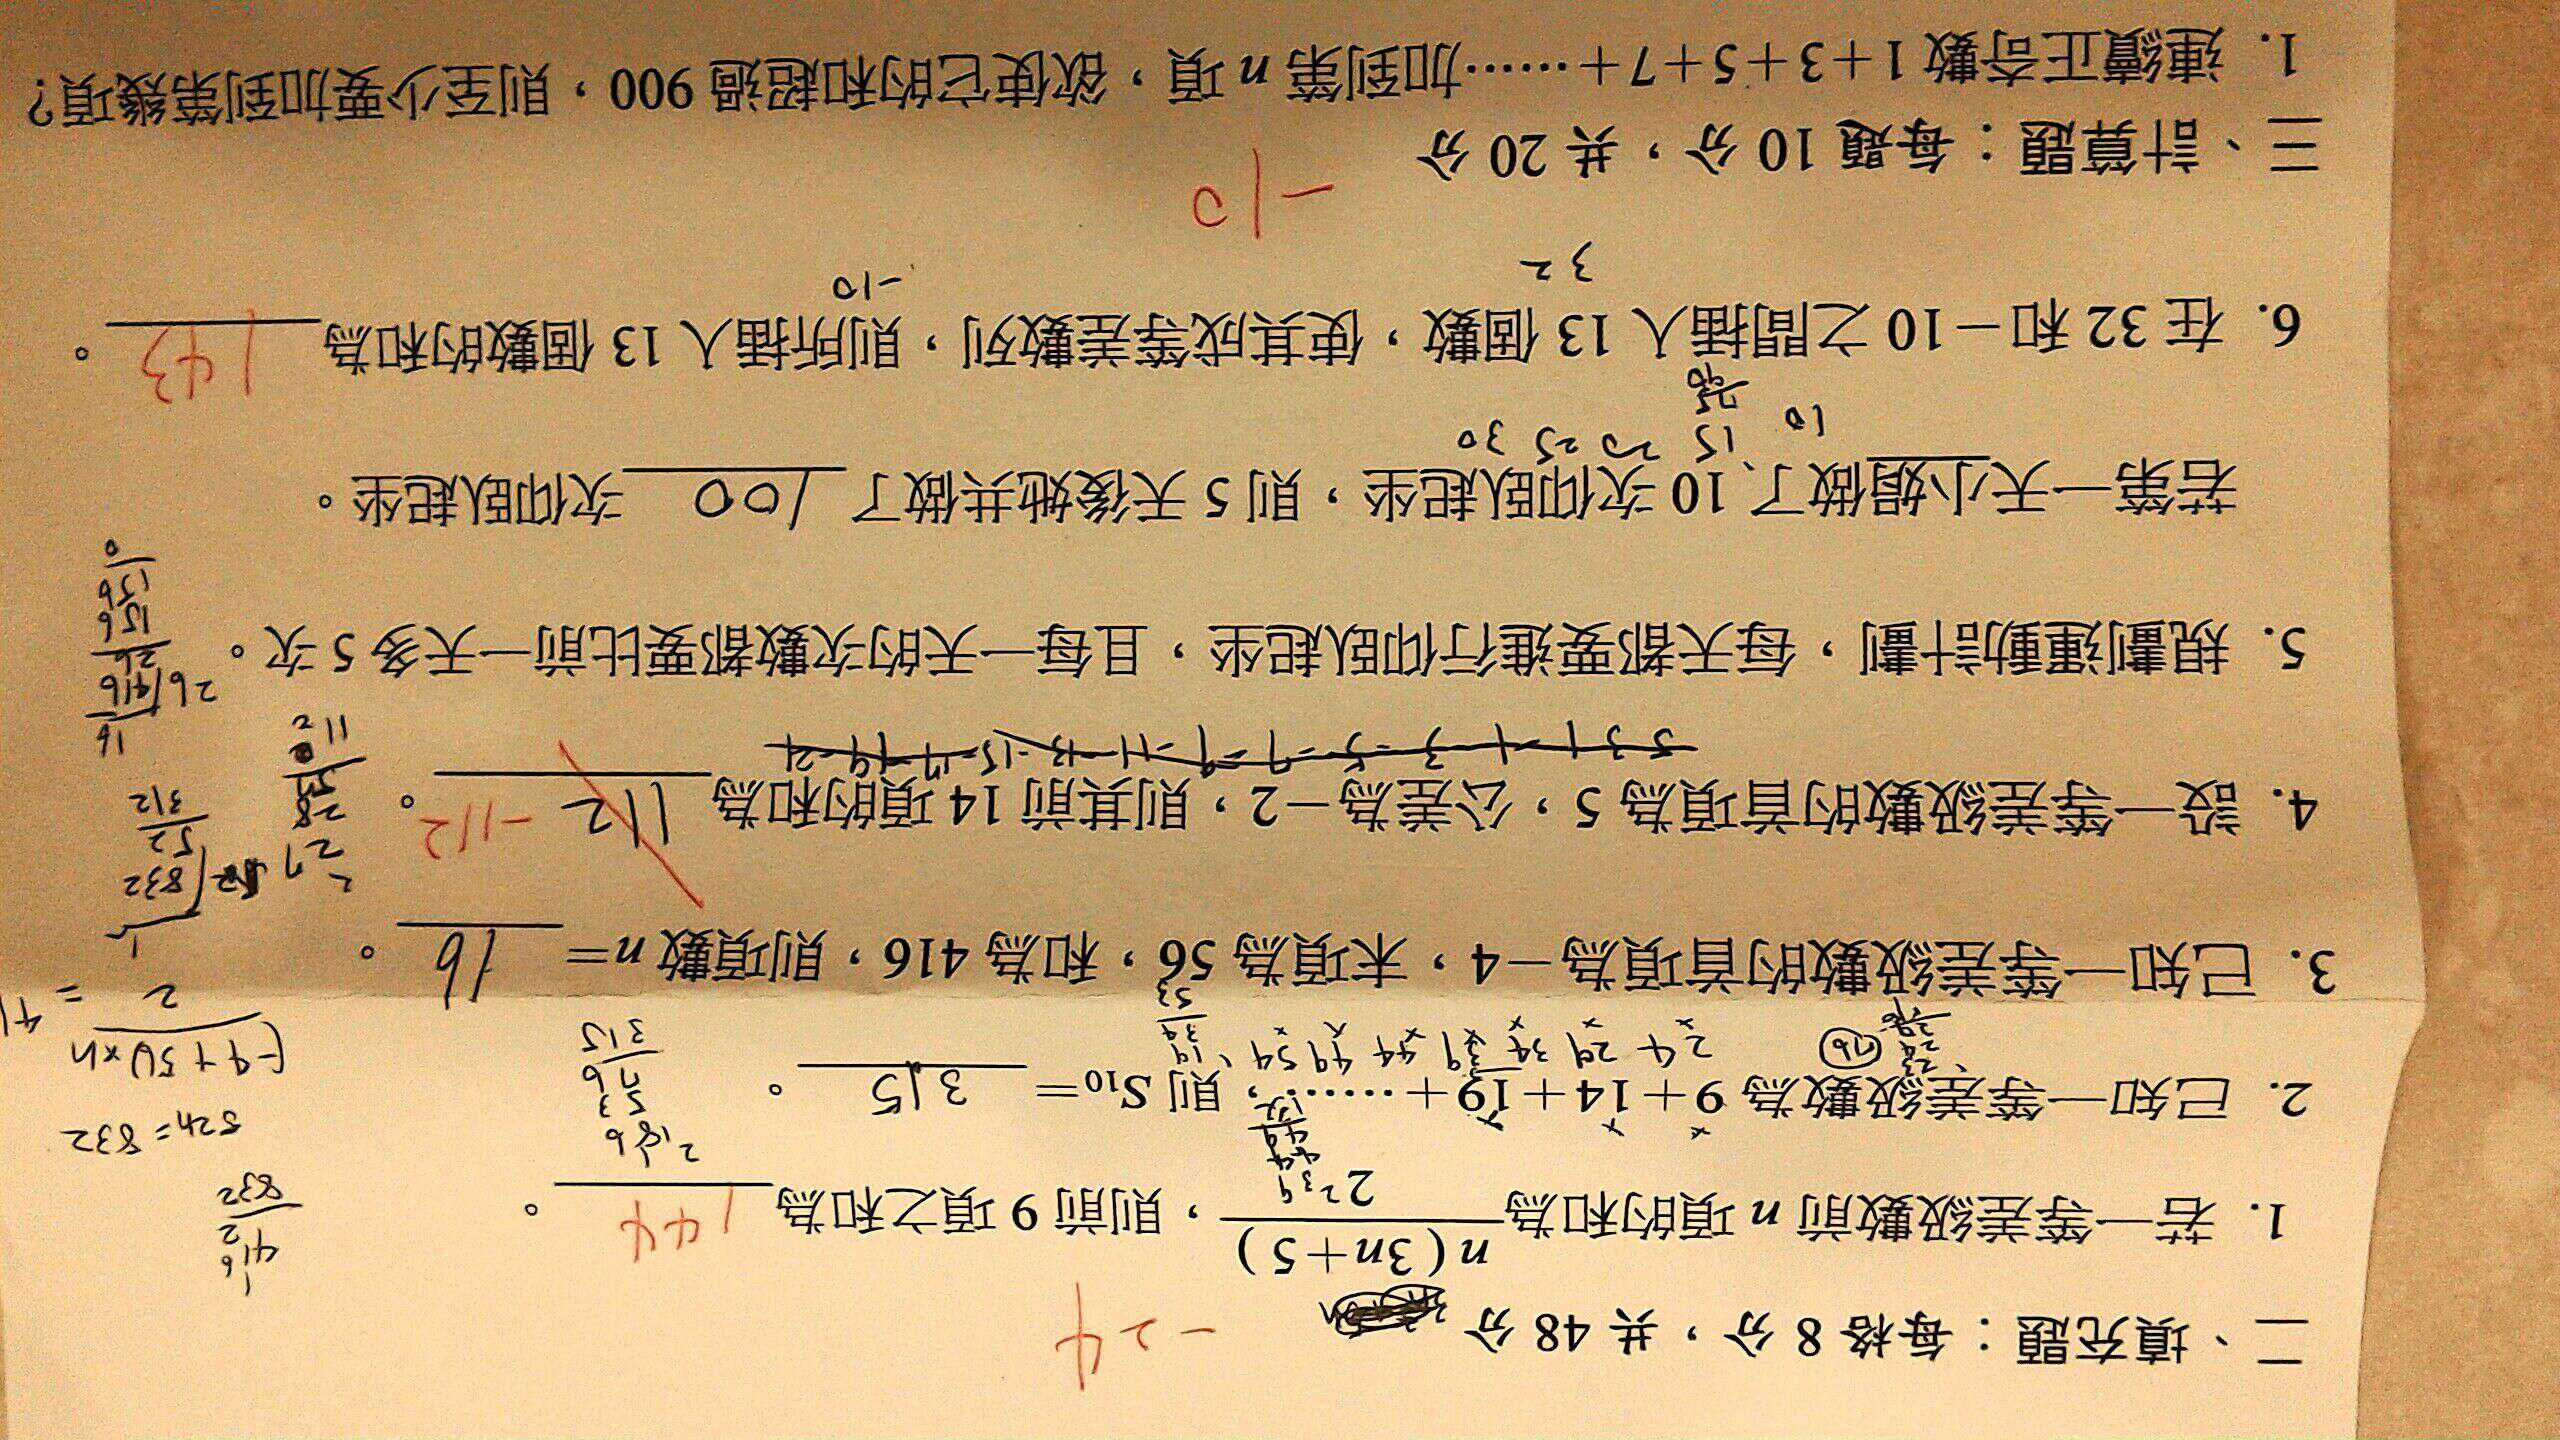 二、填充題：每格 8 分，共 48 分
-24
1. 若一等差級數前 n 項的和為 n(3n+5)/2，則前 9 項之和為 144 。
2. 已知一等差級數為 9+14+19+……，則 S10= 315 。
24 29 34 39 44 49 54
3. 已知一等差級數的首項為-4，末項為 56，和為 416，則項數 n= 16 。
4. 設一等差級數的首項為 5，公差為-2，則其前 14 項的和為 112 -112 。
5. 規劃運動計劃，每天都要進行仰臥起坐，且每一天的次數都要比前一天多 5 次。
若第一天小娟做了 10 次仰臥起坐，則 5 天後她共做了 100 次仰臥起坐。
10 15 20 25 30
6. 在 32 和-10 之間插入 13 個數，使其成等差數列，則所插入 13 個數的和為 143 。
32 -10
-10
三、計算題：每題 10 分，共 20 分
1. 連續正奇數 1+3+5+7+……加到第 n 項，欲使它的和超過 900，則至少要加到第幾項？
416
2
832
52n=832
(-4+56)×n
2
= 41
16
26 416
26
156
156
0